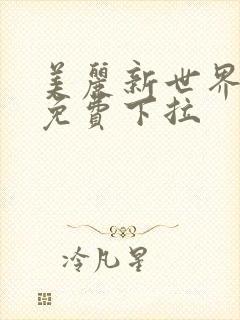 美麗新世界
免費下拉
冷凡星